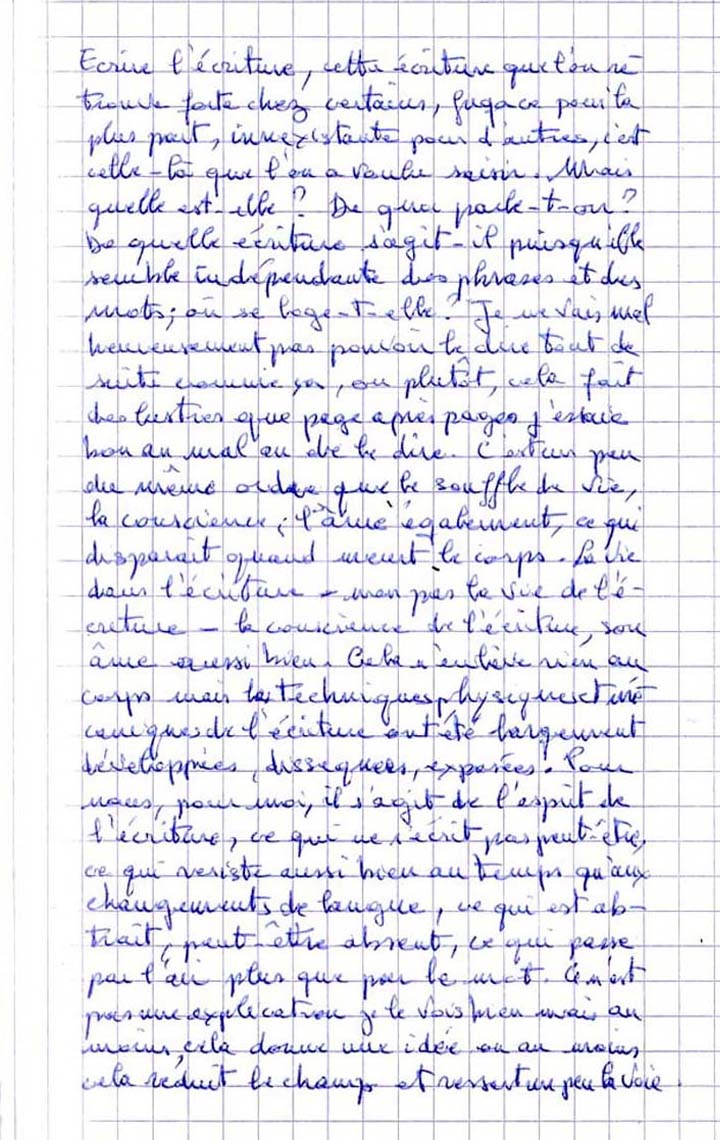 Ecrire l'écriture, cette écriture que l'on re
trouve forte chez certains, fugace pour la
plus part, innexistante pour d'autres, c'est
celle-là que l'on a voulu saisir. Mais
quelle est-elle ? De quoi parle-t-on ?
De quelle écriture s'agit-il puisqu'elle
semble indépendante des phrases et des
mots; où se loge-t-elle ? Je ne vais mal
heureusement pas pouvoir le dire tout de
suite comme ça, ou plutôt, cela fait
des lustres que page après pages j'essaie
bon an mal an de le dire. C'est un peu
du même ordre que le souffle de vie,
la conscience, l'âme également, ce qui
disparait quand meurt le corps. La vie
dans l'écriture - non pas la vie de l'é-
criture - la conscience de l'écriture, son
âme aussi bien. Cela n'enlève rien au
corps mais les techniques physiques et mé
caniques de l'écriture ont été largement
développées, disséquées, exposées. Pour
nous, pour moi, il s'agit de l'esprit de
l'écriture, ce qui ne s'écrit pas peut-être,
ce qui résiste aussi bien au temps qu'aux
changements de langue, ce qui est ab-
trait, peut-être absent, ce qui passe
par l'air plus que par le mot. Ce n'est
pas une explication je le vois bien mais au
moins, cela donne une idée ou au moins
cela réduit le champ et resserre un peu la voie.